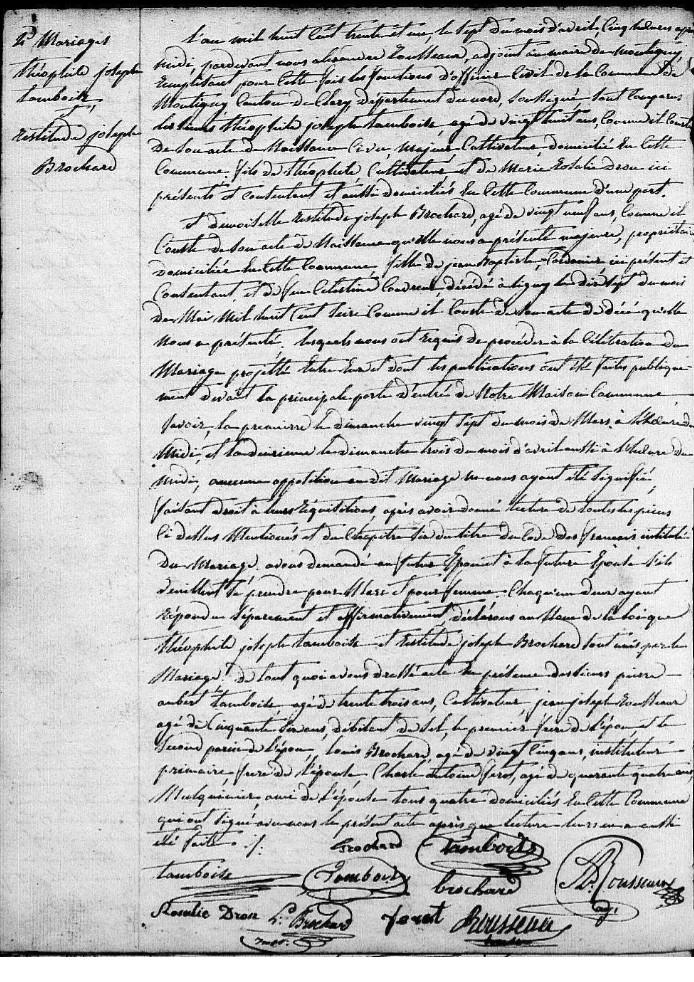 2e Mariages
théophile joseph
tamboise
et
restitude joseph
Brochard
l'an mil huit cent trente et un, le sept du mois d'avril, cinq heures après
midi, pardevant nous alexandre Rousseau, adjoint au maire de montigny
Remplissant pour cette fois les fonctions d'officier civil de la Commune de
Montigny canton de Clary Département du nord, soussigné sont comparus
les sieurs théophile joseph tamboise, agé de vingt huit ans, comme il conste
De son acte de Naissance majeur Cultivateur, domicilié en cette
Commune, fils de théophile, Cultivateur et de Marie Rosalie Dron ici
présents et consentant et aussi domiciliés en cette Commune d'une part.
Et demoiselle Restitude joseph Brochard, agé de vingt neuf ans, comme il
Conste de son acte de Naissance qu'elle nous a présenté majeure, propriétaire
Domiciliée en cette Commune, fille de jean Baptiste, ici présent et
Consentant, et de feu Celestine décédée à ligny le dix sept du mois
De Mai Mil huit cent seize comme il conste de son acte de décé qu'elle
Nous a présenté. lesquels nous ont requis de procéder à la Célébration du
Mariage projetté entre eux et dont les publications ont été faites publique-
ment devant la principale porte d'entrée de Notre Maison Commune,
Savoir, la première le dimanche vingt sept du mois de Mars, à l'heure de
Midi, et la deuxième le dimanche trois du mois d'avril aussi à l'heure de
midi, aucune opposition au dit Mariage ne nous ayant été signifié,
faisant droit à leurs réquisitions, après avoir donné lecture de toutes les pieces
Ci dessus Mentionnés et du Chapitre six du titre du Code Des français intitulé
Du Mariage, avons demandé au futur Epoux et à la future Epouse s'ils
veuillent se prendre pour Mari et pour femme. Chaqu'un d'eux ayant
Répondu séparément et affirmativement, déclarons au Nom de la loi que
théophile joseph tamboise et Restitude joseph Brochard sont unis par le
Mariage. de tout quoi avons dressé acte en présence des sieurs pierre
aubert tamboise, agé de trente trois ans, Cultivateur, jean joseph Rousseaux
agé de Cinquante six ans, débitant de sel, le premier frere de l'époux et le
second parein de l'époux, louis Brochard, agé de vingt cinq ans, instituteur
primaire, frere de l'épouse, Charle antoine forêt, agé de quarante quatre ans
Mulquinier, ami de l'épouse tous quatre domiciliés En Cette Commune
qui ont signé avec nous le présent acte après que lecture leur en a aussi
été faite ./.
brochard tamboise
tamboise tamboise brochard A. Rousseaux
adj.
Rosalie Dron L. Brochard foret Rousseau